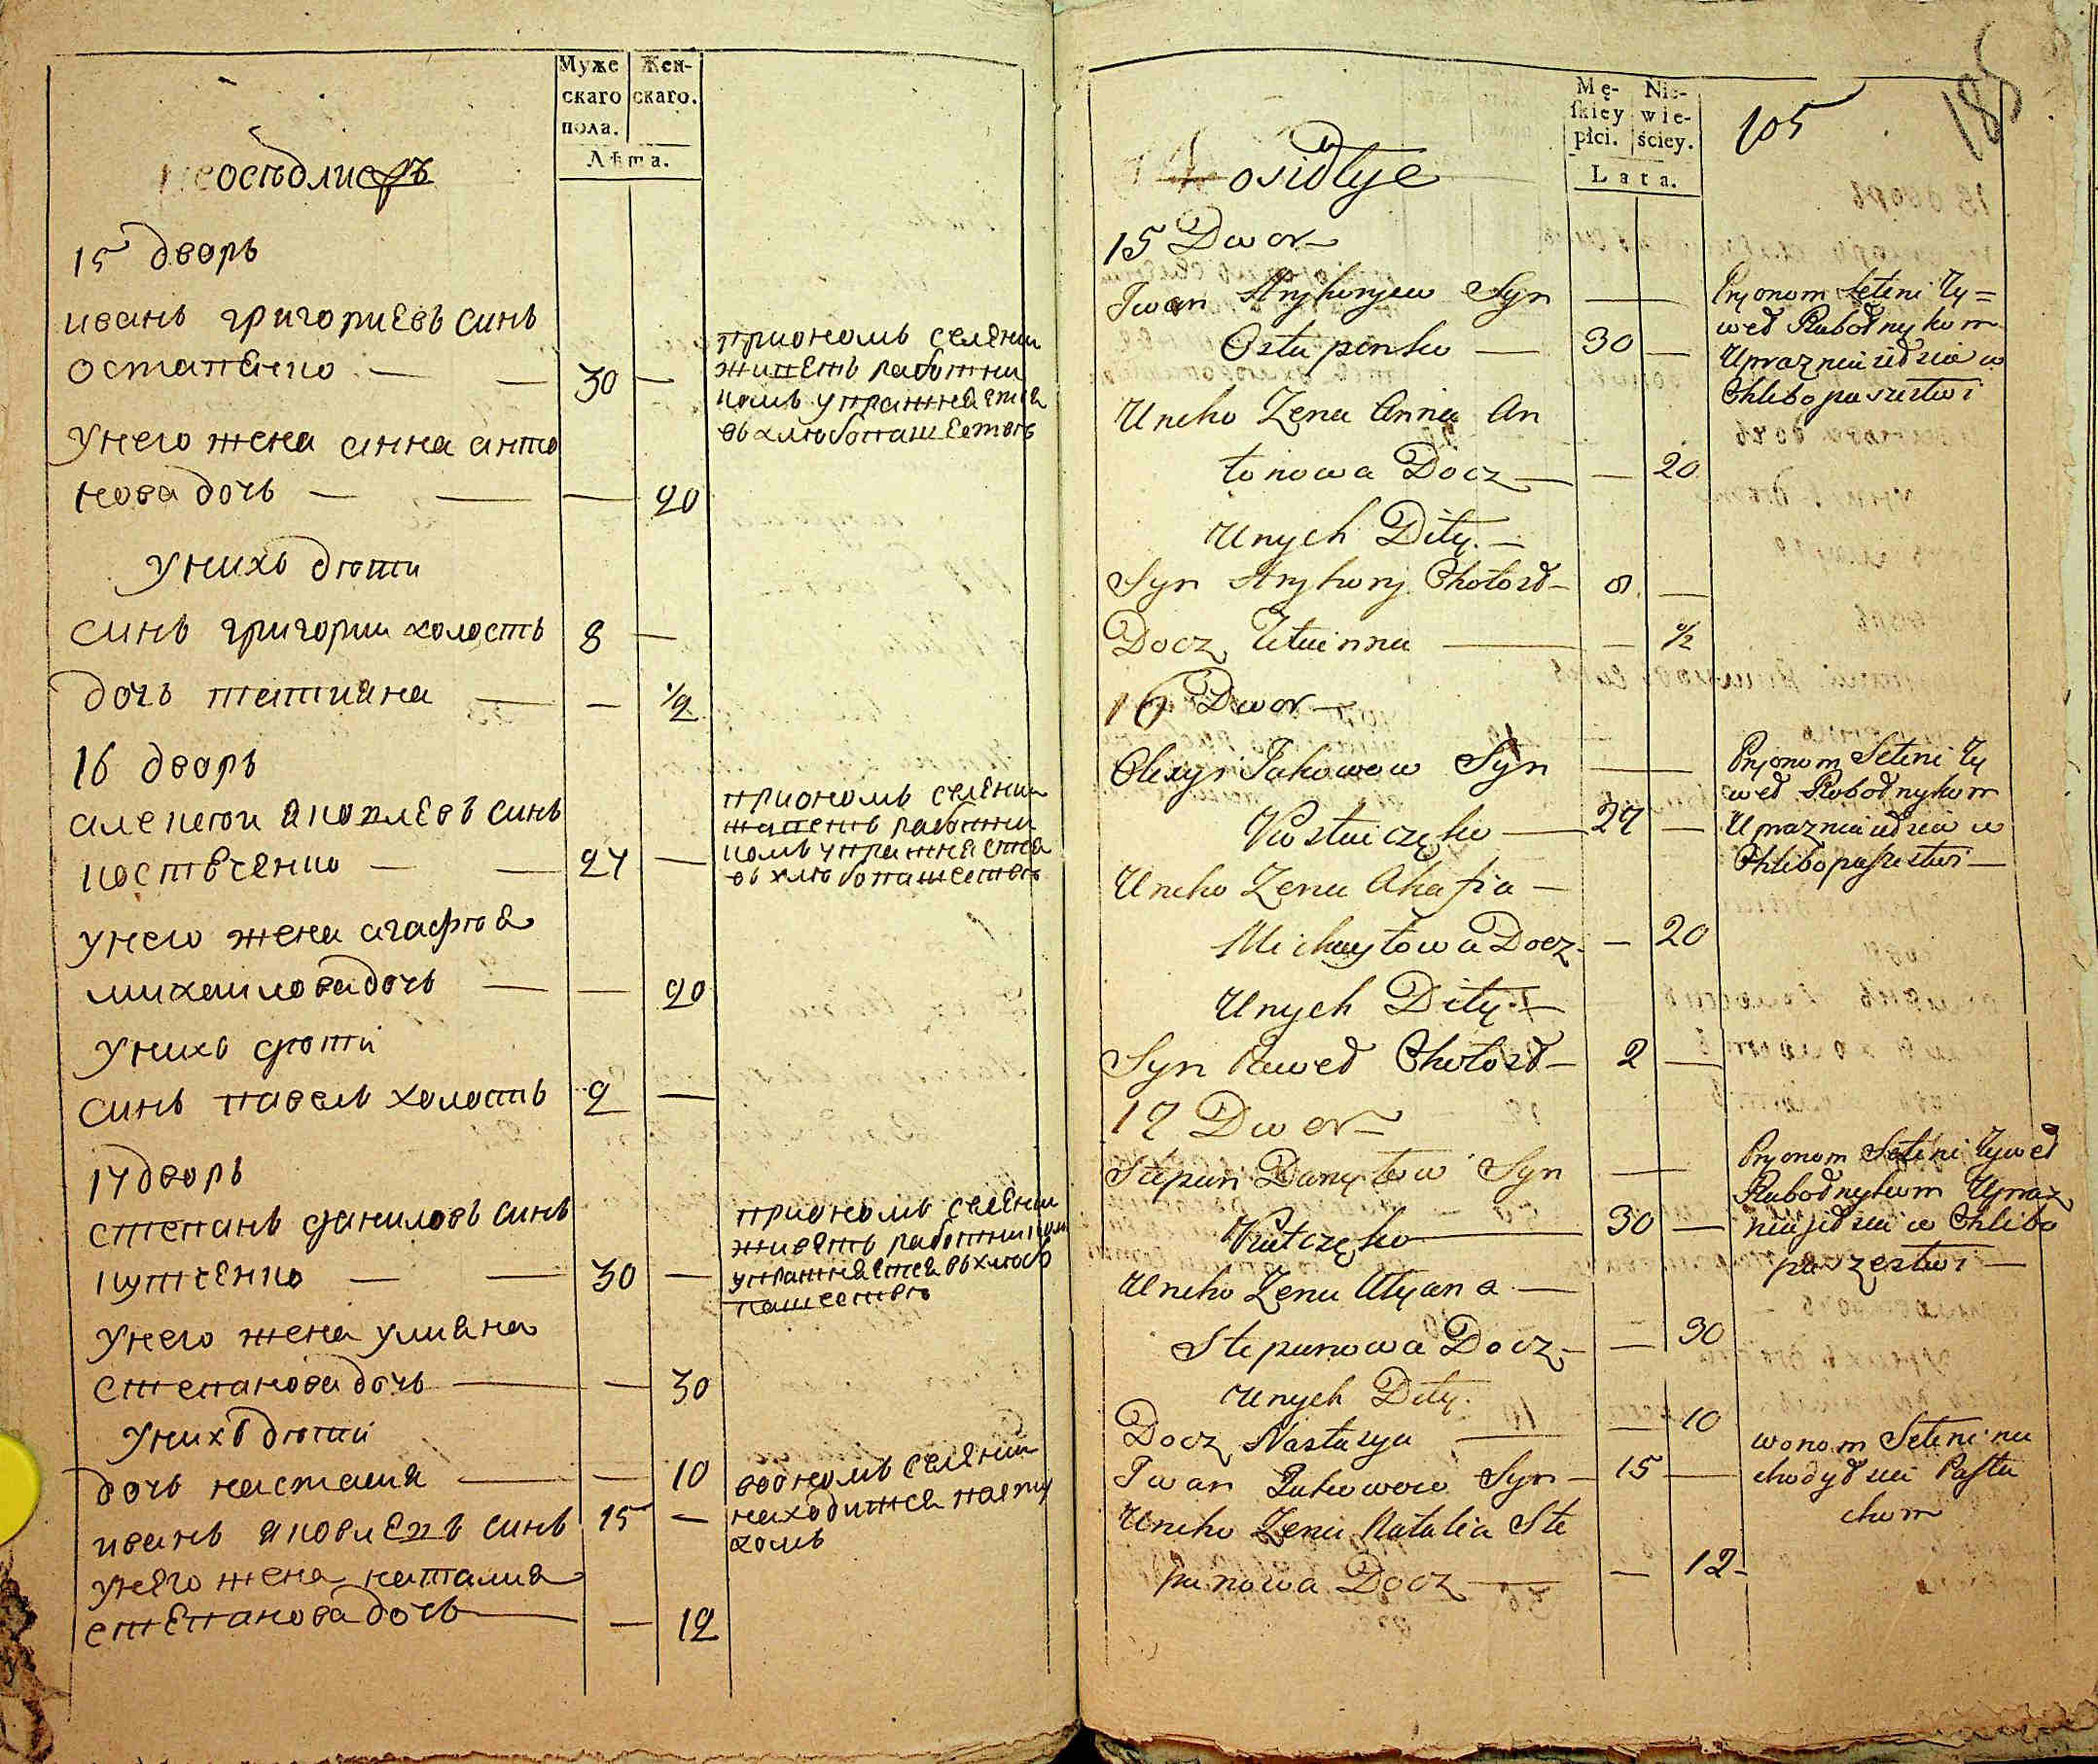 Муже
скаго
пола.
Жен-
скаго.
Лѣта.
15 дворъ
иванъ григориевъ синъ
остапенко — — 30 —
унего жена анна анто
нова дочъ — — — 20
унихъ дѣти
синъ григории холостъ 8 —
дочъ татияна — — 1/2
16 дворъ
алексѣи яковлевъ синъ
костѣченко — — 27 —
унего жена агафия
михаилова дочъ — — 20
унихъ дѣти
синъ павелъ холостъ 2 —
17 дворъ
степанъ даниловъ синъ
кутченко — — 30 —
унего жена улияна
степанова дочъ — — 30
унихъ дѣти
дочъ настасия — — 10
иванъ яковлевъ синъ 15 —
унего жена наталия
степанова дочъ — — 12
приономъ селении
живетъ работни
комъ упражняется
въ хлѣбопашествѣ
приономъ селении
живетъ работни
комъ упражняется
въ хлѣбопашествѣ
приономъ селении
живетъ работником
упражняется въ хлѣбо
пашествѣ
воономъ селении
находится пасту
хомъ
Mę-
skiey
płci.
Nie-
wie-
ściey.
Lata.
105
185
osidłye
15 Dwor —
Iwan Hryhoryew Syn —
Ostapenko — 30 —
Uneho Zena Anna An
tonowa Docz — — 20
Unych Dity. —
Syn Hryhory Chołost — 8 —
Docz Tetianna — — 1/2
16 Dwor —
Olexyi Jakowow Syn —
Kostiaczęko — 27 —
Uneho Zena Ahafia —
Michayłowa Docz — — 20
Unych Dity —
Syn Paweł Chołost — 2 —
17 Dwor —
Stepan Danyłow Syn —
Kutczęko — 30 —
Uneho Zena Ulyana —
Stepanowa Docz — — 30
Unych Dity.
Docz Nastasya — — 10
Iwan Jakowow Syn — 15 —
Uneho Zena Natalia Ste
panowa Docz — — 12 —
Pryonom Seleni Zy=
wed Rabodnykom
Uprazniaiedsia w
Chlibopaszestwi
Pryonom Seleni Zy
wed Robodnykom
Uprazniaiedsia w
Chlibopaszestwi —
Pryonom Seleni Zywed
Rabodnykom Upraz
niajedsia w Chlibo
paszestwi —
wonom Seleni na
chodydsia Pastu
chom